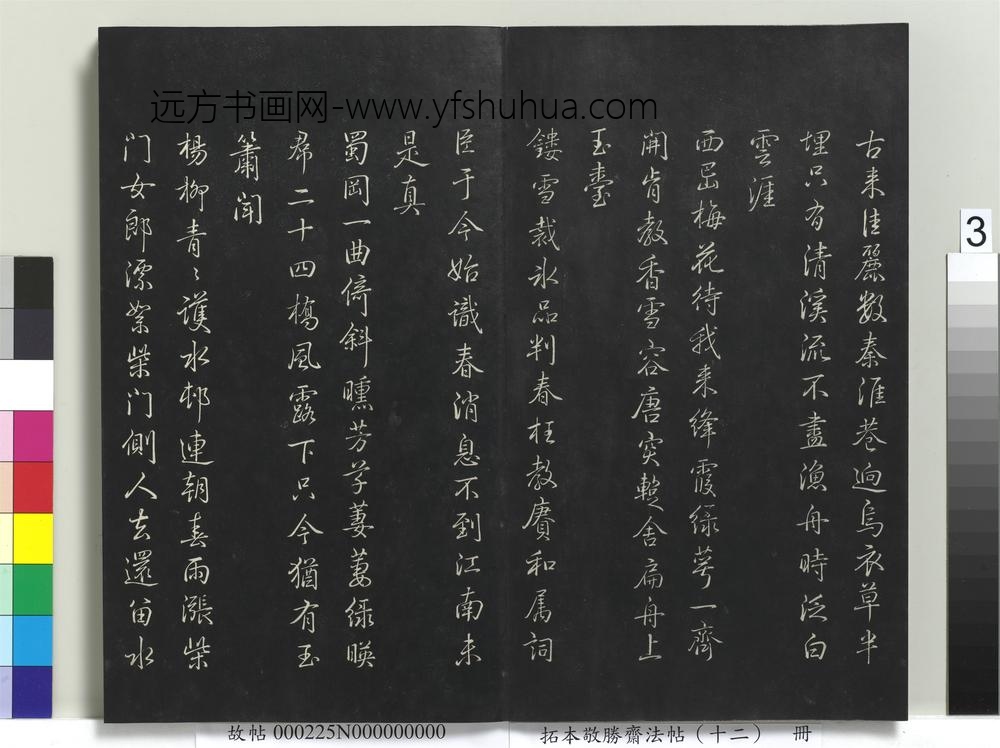 远方书画网-www.yfshuhua.com
古来佳麗數秦淮巷迥烏衣草半
埋只有清溪流不盡漁舟時泛白
雲涯
西崦梅花待我来絳霞緑萼一齊
開肯教香雪容唐突輕舍扁舟上
玉臺
鏤雪裁冰品判春枉教賡和属詞
臣于今始識春消息不到江南未
是真
蜀岡一曲倚斜曛芳草萋萋緑映
帬二十四橋風露下只今猶有玉
簫聞
楊柳青〻護水邨連朝春雨漲柴
门女郎漂絮柴门側人去還留水
3
故帖 000225N000000000
拓本敬勝齋法帖（十二） 冊